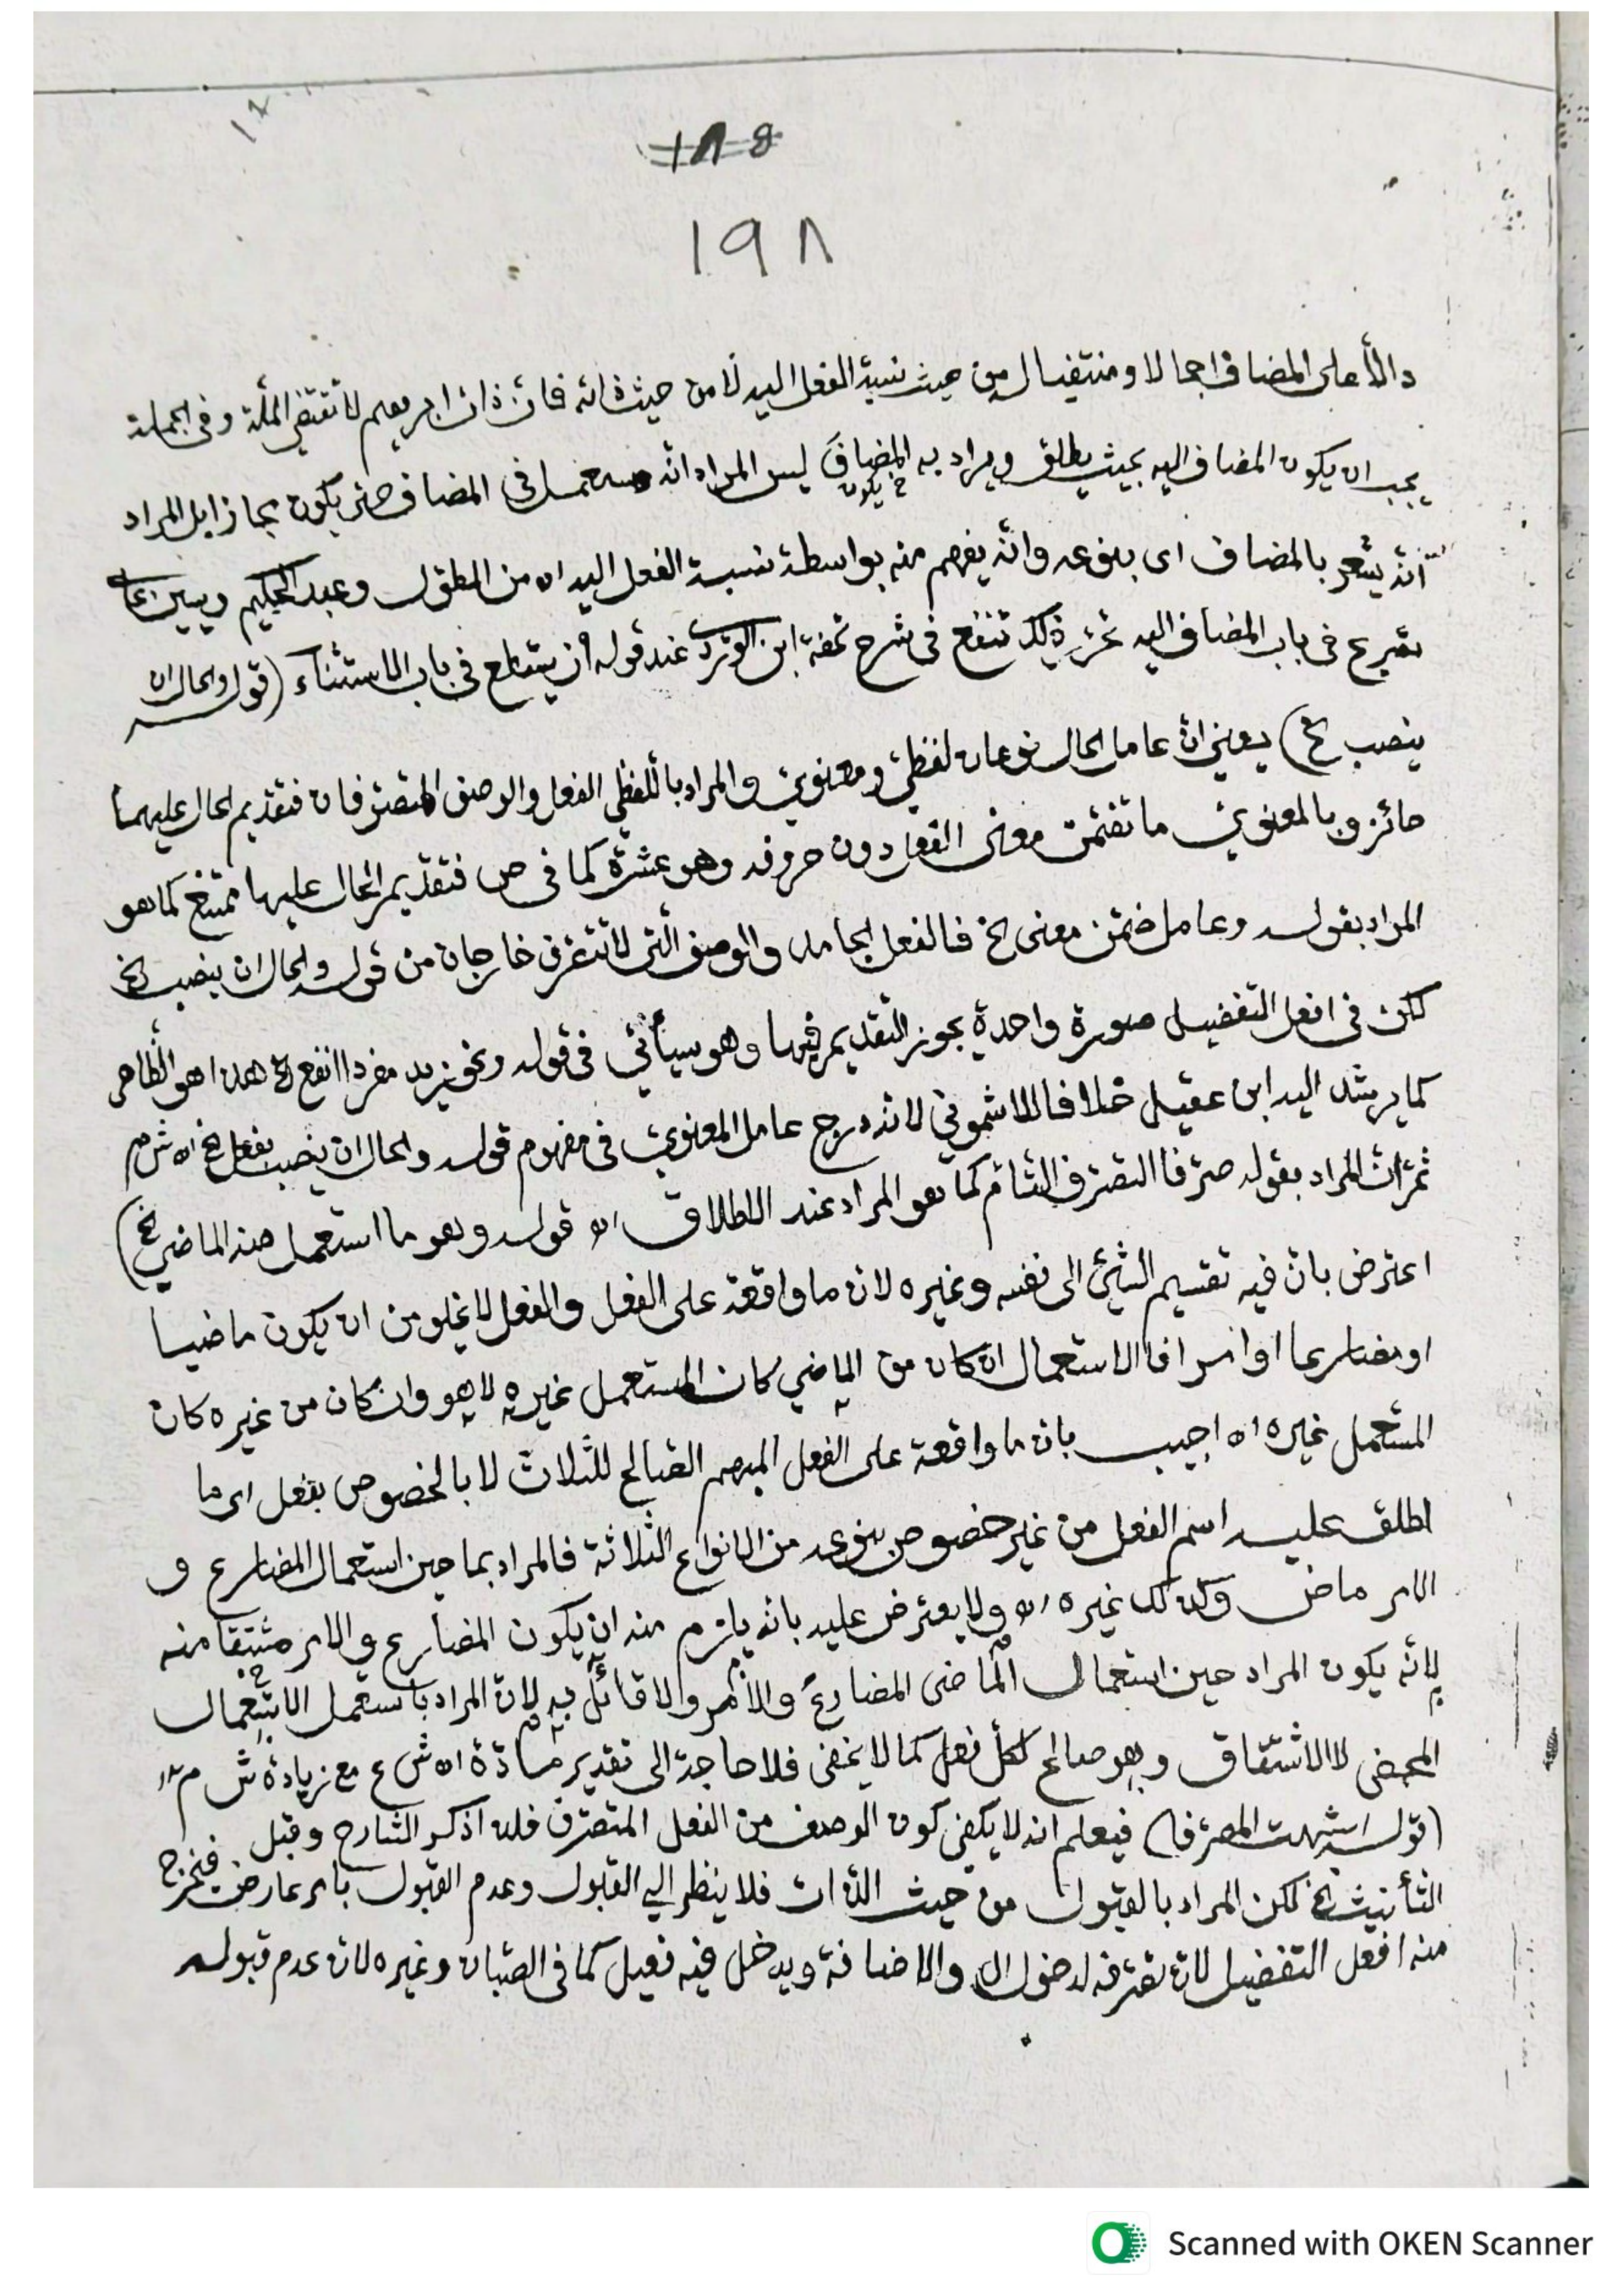 ١٨٥
١٩٨
دالا على المضاف اجمالا ومنتفيا له من حيث نسبة الفعل اليه لا من حيث ذاته فان ذات ابراهيم لا تقتضي الملة وفي الجملة
يجب ان يكون المضاف اليه بحيث يطلق ويراد به المضاف ليس المراد انه مستعمل في المضاف حتى يكون مجازا بل المراد
يكون
انه يشعر بالمضاف اى بنوعه وانه يفهم منه بواسطة نسبة الفعل اليه اه من المطول وعبد الحكيم ويس
في باب المضاف اليه ذلك تنفع في شرح تحفة ابن الوردي عند قوله في باب الاستثناء (قوله والحال ان
ينصب الخ) يعني ان عامل الحال نوعان لفظي ومعنوي والمراد باللفظي الفعل والوصف المتصرفان فتقديم الحال عليهما
جائز وبالمعنوي ما تضمن معنى الفعل دون حروفه وهو عشرة كما في ص فتقديم الحال عليها ممتنع كما هو
المراد بقوله وعامل ضمن معنى الخ فالفعل الجامد والوصف التي لا تتصرف خارجان من قوله والحال ان ينصب الخ
لكن في افعل التفضيل صورة واحدة يجوز التقديم فيها وهو سيأتي في قوله ونحو زيد مفردا انفع الخ هذا هو الظاهر
كما يرشد اليه ابن عقيل خلافا للاشموني لانه درج عامل المعنوي في مفهوم قوله والحال ان ينصب بفعل الخ اه ش م
ثم ان المراد بقوله صرفا التصرف التام كما هو المراد عند الاطلاق اه قوله وهو ما استعمل منه الماضي الخ)
اعترض بان فيه تقسيم الشئ الى نفسه وغيره لان ما واقعة على الفعل والفعل لا يخلو من ان يكون ماضيا
او مضارعا او امرا فالاستعمال ان كان من الماضي كان المستعمل غيره لا هو وان كان من غيره كان
المستعمل غيره اه اجيب بان ما واقعة على الفعل المبهم الصالح للثلاث لا بالخصوص بفعل اى ما
اطلق عليه اسم الفعل من غير خصوص بنوعه من الانواع الثلاثة فالمراد بما حين استعمال المضارع و
الامر ماض وكذلك غيره اه ولا يعترض عليه بانه يلزم منه ان يكون المضارع والامر مشتقا منه
لانه يكون المراد حين استعمال الماضى المضارع والامر ولا قائل به لان المراد باستعمل الاستعمال
المحض لا الاشتقاق وهو صالح لكل فعل كما لا يخفى فلا حاجة الى تقدير مادة اه ش ع مع زيادة ش م
(قوله اشبهت المصرفا) فيعلم انه لا يكفي كون الوصف من الفعل المتصرف فلذا ذكر الشارح وقبل
التأنيث الخ لكن المراد بالقبول من حيث الذات فلا ينظر الي القبول وعدم القبول بامر عارض فيخرج
منه افعل التفضيل لان تصرفه لدخول ال والاضافة ويدخل فيه فعيل كما في الصبان وغيره لان عدم قبوله
Scanned with OKEN Scanner